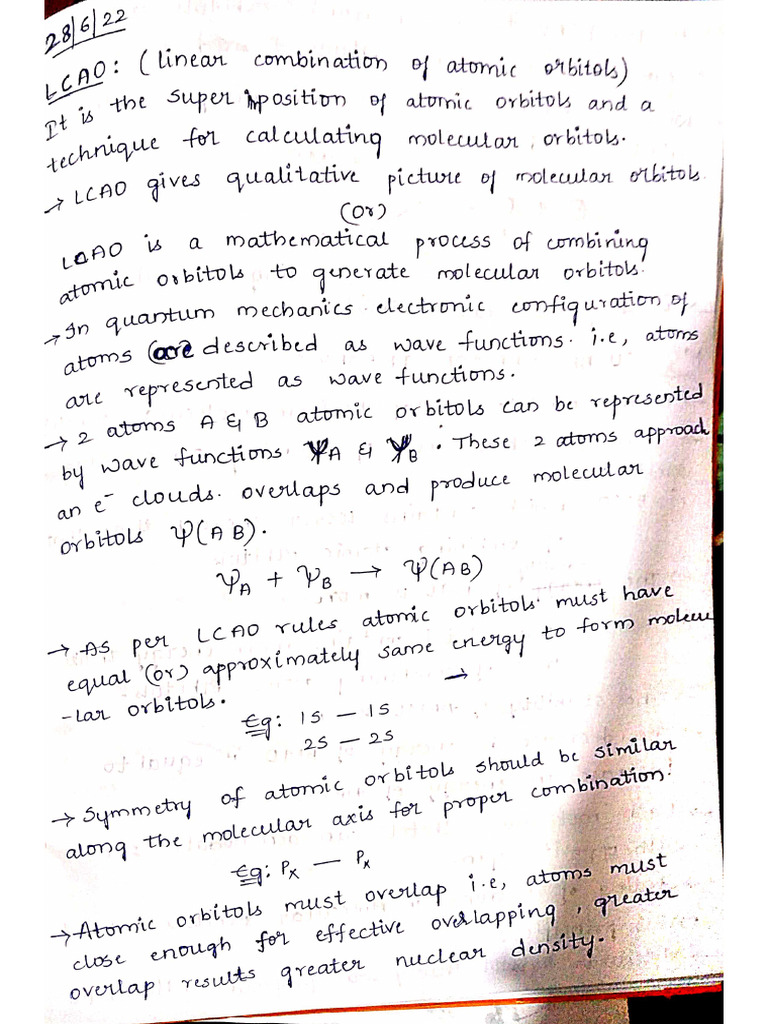 28/6/22
LCAO: (linear combination of atomic orbitols)
It is the super position of atomic orbitols and a
technique for calculating molecular orbitols.
→ LCAO gives qualitative picture of molecular orbitols
(or)
LCAO is a mathematical process of combining
atomic orbitols to generate molecular orbitols.
→ In quantum mechanics electronic configuration of
atoms are described as wave functions. i.e, atoms
are represented as wave functions.
→ 2 atoms A & B atomic orbitols can be represented
by wave functions ΨA & ΨB. These 2 atoms approach
an e⁻ clouds. overlaps and produce molecular
orbitols Ψ(AB).
ΨA + ΨB → Ψ(AB)
→ As per LCAO rules atomic orbitols must have
equal (or) approximately same energy to form molecu
-lar orbitols. →
Eg: 1s — 1s
2s — 2s
→ Symmetry of atomic orbitols should be similar
along the molecular axis for proper combination.
Eg: Px — Px
→ Atomic orbitols must overlap i.e, atoms must
close enough for effective overlapping, greater
overlap results greater nuclear density.